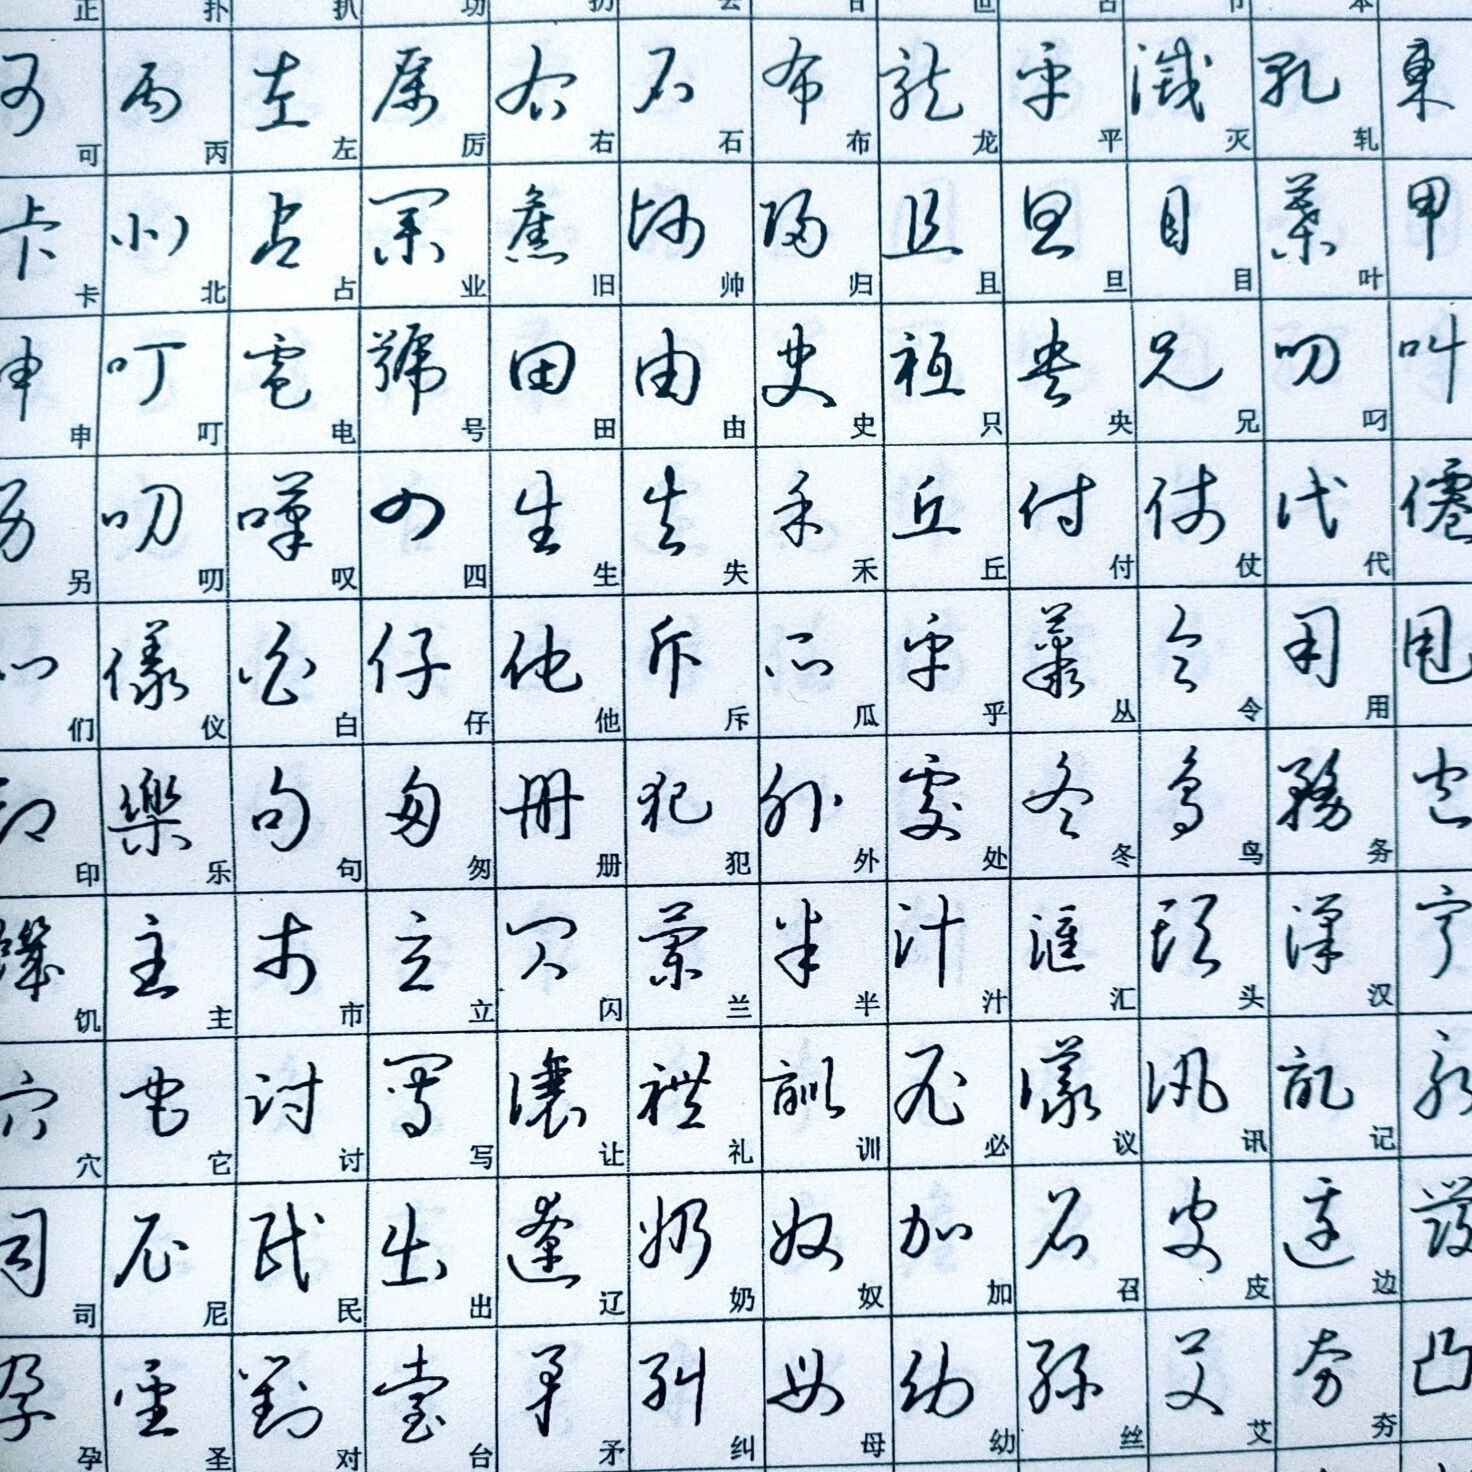 正 扑 扒 功 扔 去 甘 世 古 节 本
可 丙 左 厉 右 石 布 龙 平 灭 轧
卡 北 占 业 旧 帅 归 且 旦 目 叶
申 叮 电 号 田 由 史 只 央 兄 叼
另 叨 叹 四 生 失 禾 丘 付 仗 代
们 仪 白 仔 他 斥 瓜 乎 丛 令 用
印 乐 句 匆 册 犯 外 处 冬 鸟 务
饥 主 市 立 闪 兰 半 汁 汇 头 汉
穴 它 讨 写 让 礼 训 必 议 讯 记
司 尼 民 出 辽 奶 奴 加 召 皮 边
孕 圣 对 台 矛 纠 母 幼 丝 艾 夯